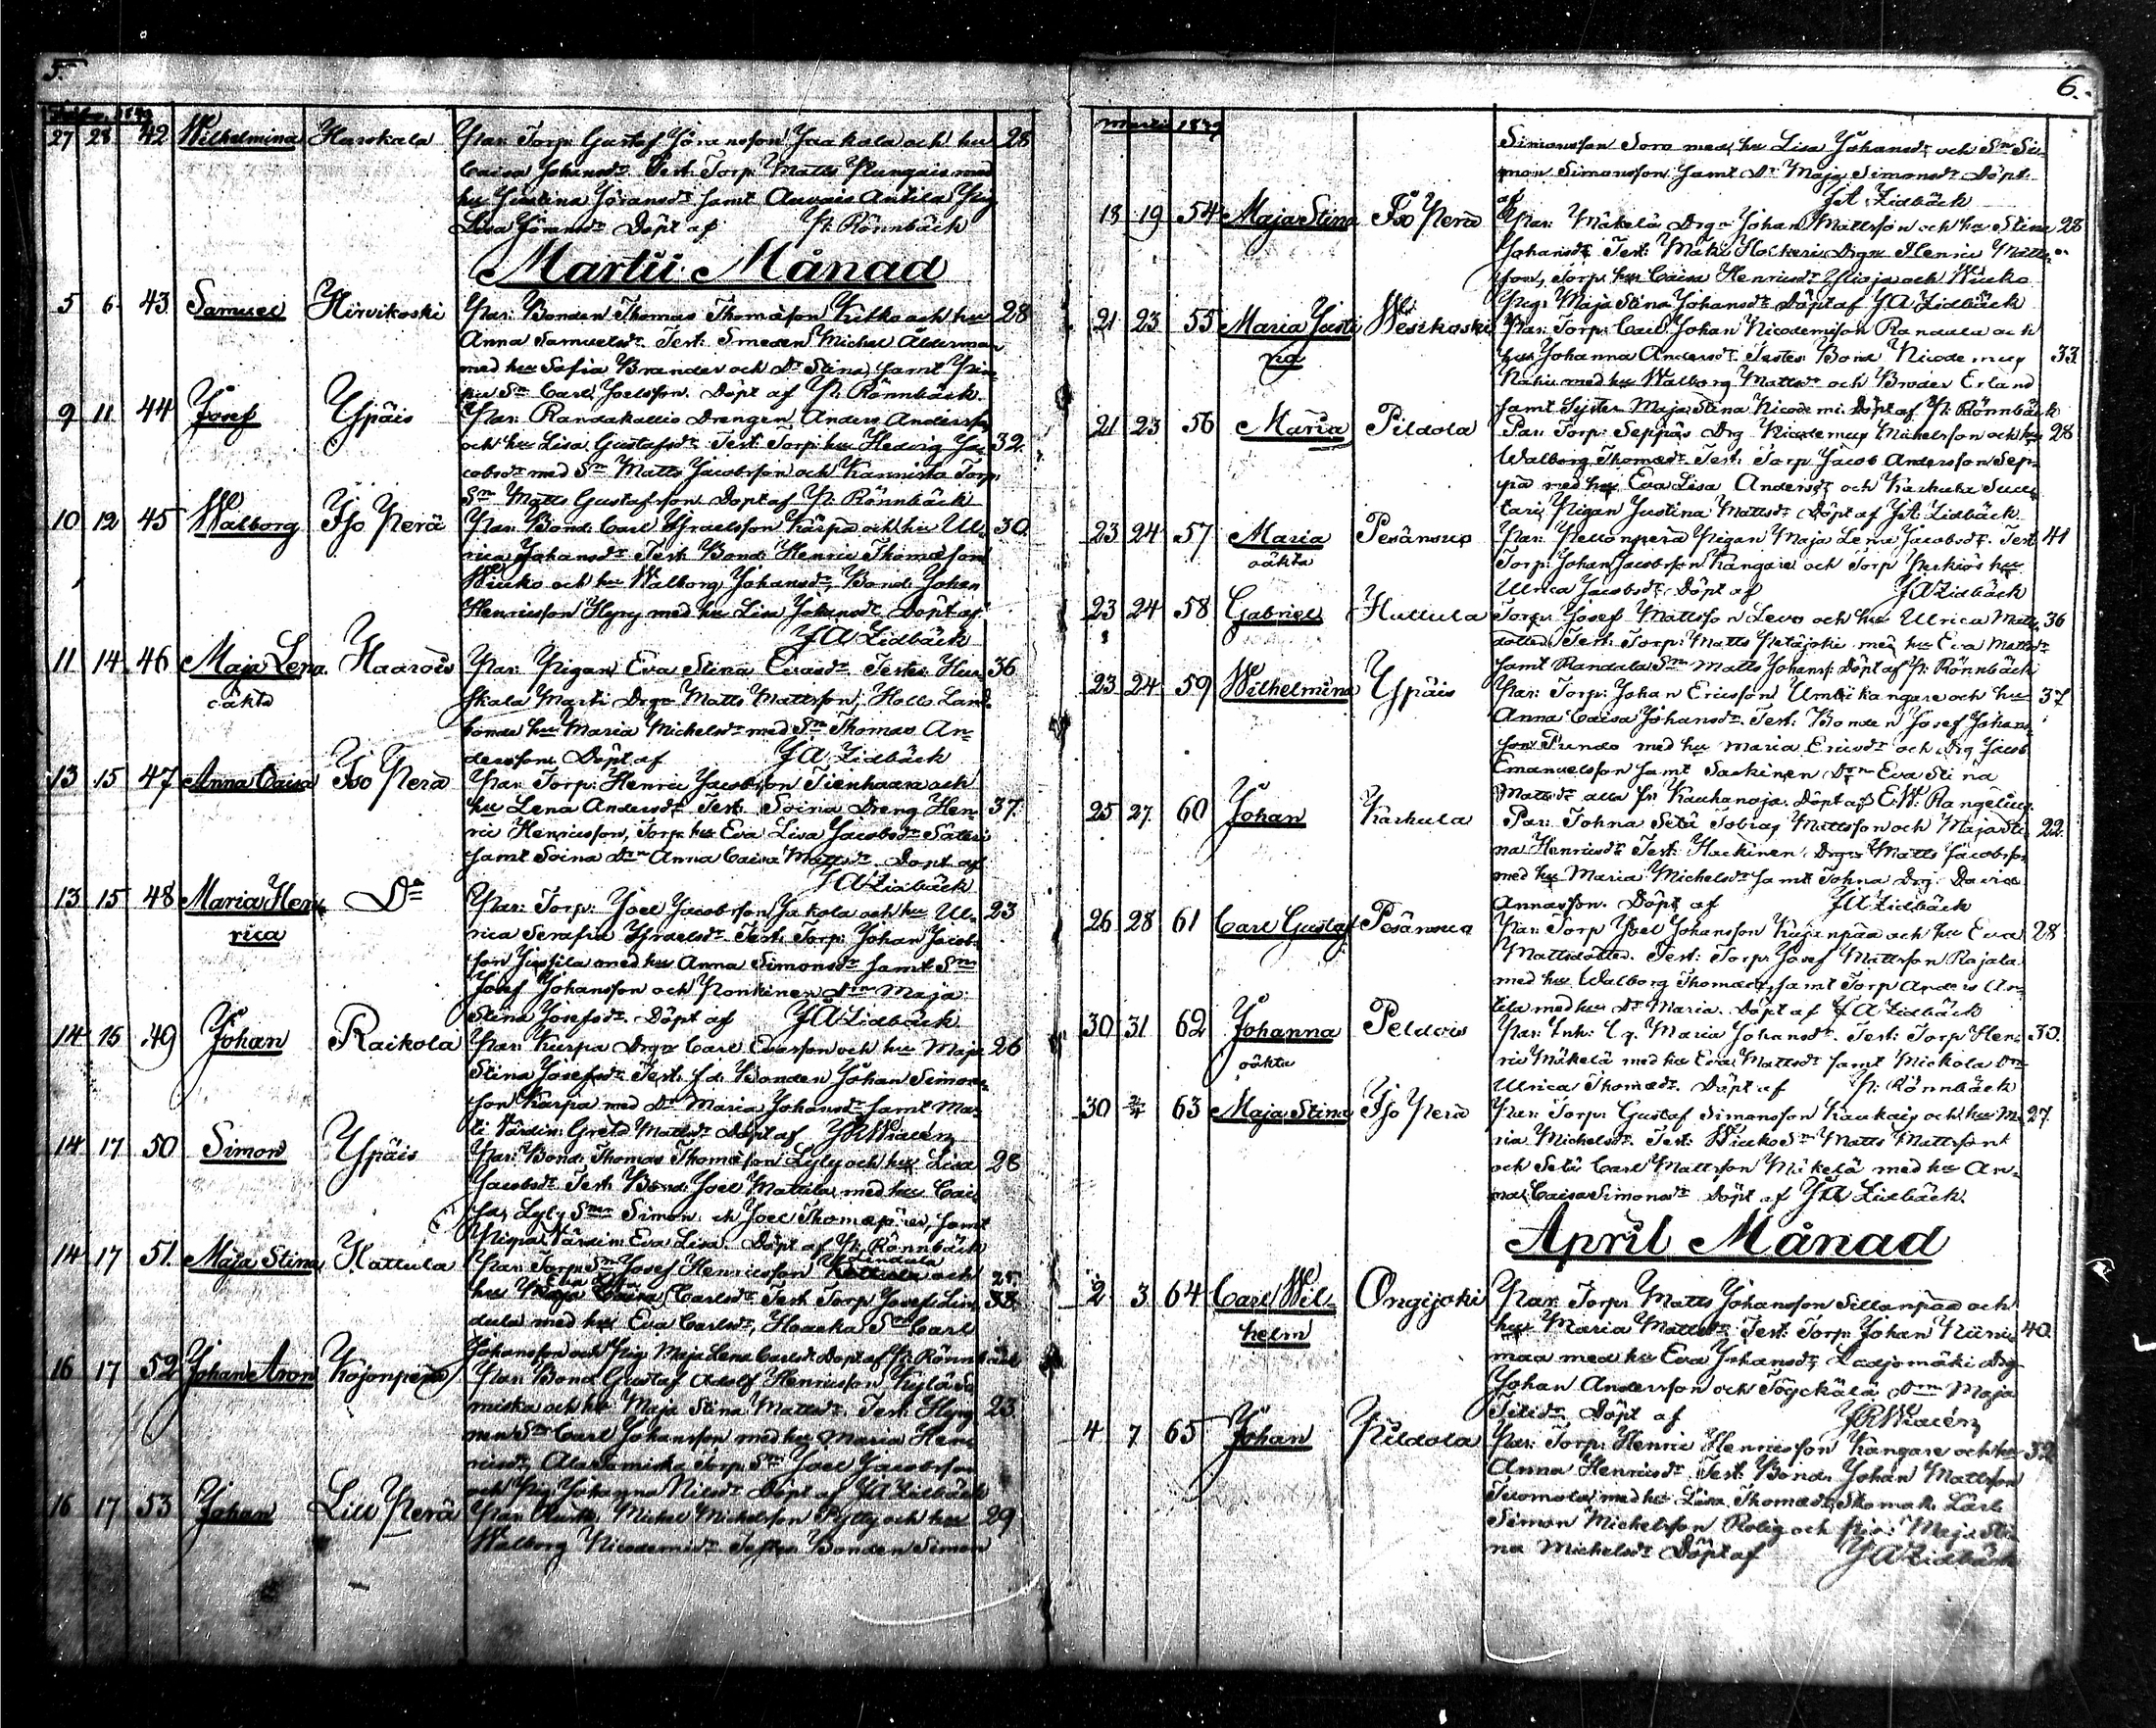 5.
27 28 42 Wilhelmina Harskala Par. Torp. Gustaf Jöransson Jaakola och hu 28
Caisa Johansdr. Test. Torp. Matts Kangais med
hu Justina Jöransdr samt Anttila Pig
Lisa Jöransdr Döpt af P. Rönnbäck
Martii Månad
5 6 43 Samuel Hirvikoski Par. Bonden Thomas Thomasson och hu 28
Anna Samuelsdr. Test. Smeden Michel Ålderman
med hu Sofia Brander och Dr Stina, samt
Sn Carl Joelsson. Döpt af P. Rönnbäck
9 11 44 Josef Ypäis Par. Randakallio Drengen Anders Andersson
och hu Lisa Gustafsdr. Test. Torp. hu Hedvig Ja- 32
cobsdr med Sn Matts Jacobsson och Kannisto Torp.
Sn Matts Gustafsson Döpt af P. Rönnbäck
10 12 45 Walborg Iso Perä Par. Bond. Carl Israelsson Kärpä och hu Ul- 30
rica Johansdr. Test. Bond. Henric Thomasson
Wiuko och hu Walborg Johansdr, Bond. Johan
Henricsson Hyry med hu Lisa Johansdr. Döpt af
JA Lidbäck
11 14 46 Maja Lena Haarois Par. Pigan Eva Stina Ericsdr Testes 36
oäkta Marti Drgn Matts Mattsson, Land-
bonde hu Maria Michelsdr med Sn Thomas An-
dersson. Döpt af JA Lidbäck
13 15 47 Anna Caisa Iso Perä Par. Torp. Henric Jacobsson Tienhaara och
hu Lena Andersdr. Test. Soina Dreng Hen- 37
ric Henricsson, Torp. hu Eva Lisa Jacobsdr Säteri
samt Soina Drn Anna Caisa Mattsdr. Döpt af
JA Lidbäck
13 15 48 Maria Hen- Do Par. Torp. Joel Jacobsson Jakola och hu Ul- 23
rica rica Serafia Israelsdr. Test. Torp. Johan Jacob-
son Jussila med hu Anna Simonsdr samt Sn
Josef Johansson och Ronkinen Drn Maja
Stina Josefsdr. Döpt af JA Lidbäck
14 16 49 Johan Raikola Par. Kurpa Drgn Carl Evasson och hu Maja 26
Stina Josefsdr. Test. f.d. Bonden Johan Simons-
son Karpia med Dr Maria Johansdr samt Ma-
Greta Mattsdr Döpt af
14 17 50 Simon Ypäis Par. Bond. Thomas Thomasson Lyly och hu Lisa 28
Jacobsdr. Test. Bond. Joel Mattila med hu Cai-
sa, Lyly Sn Simon och Joel samt
Eva Lisa. Döpt af P. Rönnbäck
14 17 51 Maja Stina Hattula Par. Torp. Sn Josef Henricsson och
hu Eva Lisa Carlsdr Test Torp Josef Lin-
dula med hu Eva Carlsdr, Haaka Sn Carl
Johansson och Pig. Maja Lena Carlsdr Döpt af P. Rönnbäck
16 17 52 Johan Aron Kojonperä Par. Bond. Gustaf Adolf Henricsson Kylä Sa-
miska och hu Maja Stina Mattsdr. Test. Hyry- 23
men Sn Carl Johansson med hu Maria Hen-
ricsdr, Ala Samiska Torp. Sn Joel Jacobsson
och Pig. Johanna Nilsdr. Döpt af JA Lidbäck
16 17 53 Johan Liu Perä Par. Michel Michelsson Pytty och hu 29
Walborg Nicodemisdr. Testes Bonden Simon
6.
Martii 1849
Simonsson Soro med hu Lisa Johansdr och Sn Si-
mon Simonsson samt Dr Maja Simonsdr Döpt
af JA Lidbäck
18 19 54 Maja Stina Iso Perä Par. Mäkelä Drgn Johan Mattsson och hu Stina 28
Johansdr. Test. Drgn Henric Matts-
son, Torp. hu Caisa Henricsdr och Wiuko
Pig. Maja Stina Johansdr. Döpt af JA Lidbäck
21 23 55 Maria Justi- Weskoski Par. Torp. Carl Johan Nicodemisson Randala och
na hu Johanna Andersdr. Testes Bond Nicodemus 33
med hu Walborg Mattsdr och Broder Erland
samt Syster Maja Stina Nicodemi. Döpt af P. Rönnbäck
21 23 56 Maria Pildola Par. Torp. Seppäs Drg Nicodemus Michelsson och hu 28
Walborg Thomasdr. Test. Torp. Jacob Andersson Sep-
pä med hu Eva Lisa Andersdr och Karhula
Pigan Justina Mattsdr. Döpt af JA Lidbäck
23 24 57 Maria Pesänsuo Par. Pellonperä Pigan Maja Lena Jacobsdr. Test. 41
oäkta Torp. Johan Jacobsson Kangare och Torp hu
Ulrica Jacobsdr. Döpt af JA Lidbäck
23 24 58 Gabriel Hattula Torp. Josef Mattsson Levo och hu Ulrica Matts- 36
dotter. Test. Torp. Matts Petäjoki med hu Eva Mattsdr
samt Randala Sn Matts Johanss: Döpt af P. Rönnbäck
23 24 59 Wilhelmina Ypäis Par. Torp. Johan Ericsson Umbikangare och hu 37
Anna Caisa Johansdr. Test. Bonden Josef Johans-
son Pundo med hu Maria Ericsdr och Drg Jacob
Emanuelsson samt Sackinen Drn Eva Stina
Mattsdr alla fr. Kauhanoja. Döpt af E.W. Rangelius
25 27 60 Johan Karhula Par. Tohna Setä Tobias Mattsson och Maja Sti- 22
na Henricsdr. Test. Hackinen Drgn Matts Jacobsson
med hu Maria Michelsdr samt Tohna Drg. David
Annasson. Döpt af JA Lidbäck
26 28 61 Carl Gustaf Pesänsuo Par. Torp Joel Johansson Kujanpää och hu Eva 28
Mattsdotter. Test. Torp. Josef Mattsson Rajala
med hu Walborg Thomasdr, samt Torp Anders An-
tila med hu Dr Maria. Döpt af JA Lidbäck
30 31 62 Johanna Peldois Par. Inh. Maria Johansdr. Test. Torp Hen- 30
oäkta ric Mäkelä med hu Eva Mattsdr samt Mickola Drn
Ulrica Thomasdr. Döpt af P. Rönnbäck
30 2/4 63 Maja Stina Iso Perä Par. Torp. Gustaf Simonsson Kaukais och hu Ma- 27
ria Michelsdr. Test. Wiuko Sn Matts Mattsson
och Setä Carl Mattsson Mäkelä med hu An-
na Caisa Simonsdr Döpt af JA Lidbäck
April Månad
2 3 64 Carl Wil- Ongijoki Par. Torp. Matts Johansson Sillanpää och
helm hu Maria Mattsdr. Test. Torp. Johan Niini- 40
maa med hu Eva Johansdr, Ladjomäki Drg
Johan Andersson och Töyckälä Drn Maja
Döpt af
4 7 65 Johan Pildola Par. Torp. Henric Henricsson Kangare och hu 32
Anna Henricsdr Test. Bond. Johan Mattsson
Tuomola med hu Lisa Thomasdr, Skomak. Lärl.
Simon Michelsson Rolig och Maja Sti-
na Michelsdr Döpt af JA Lidbäck